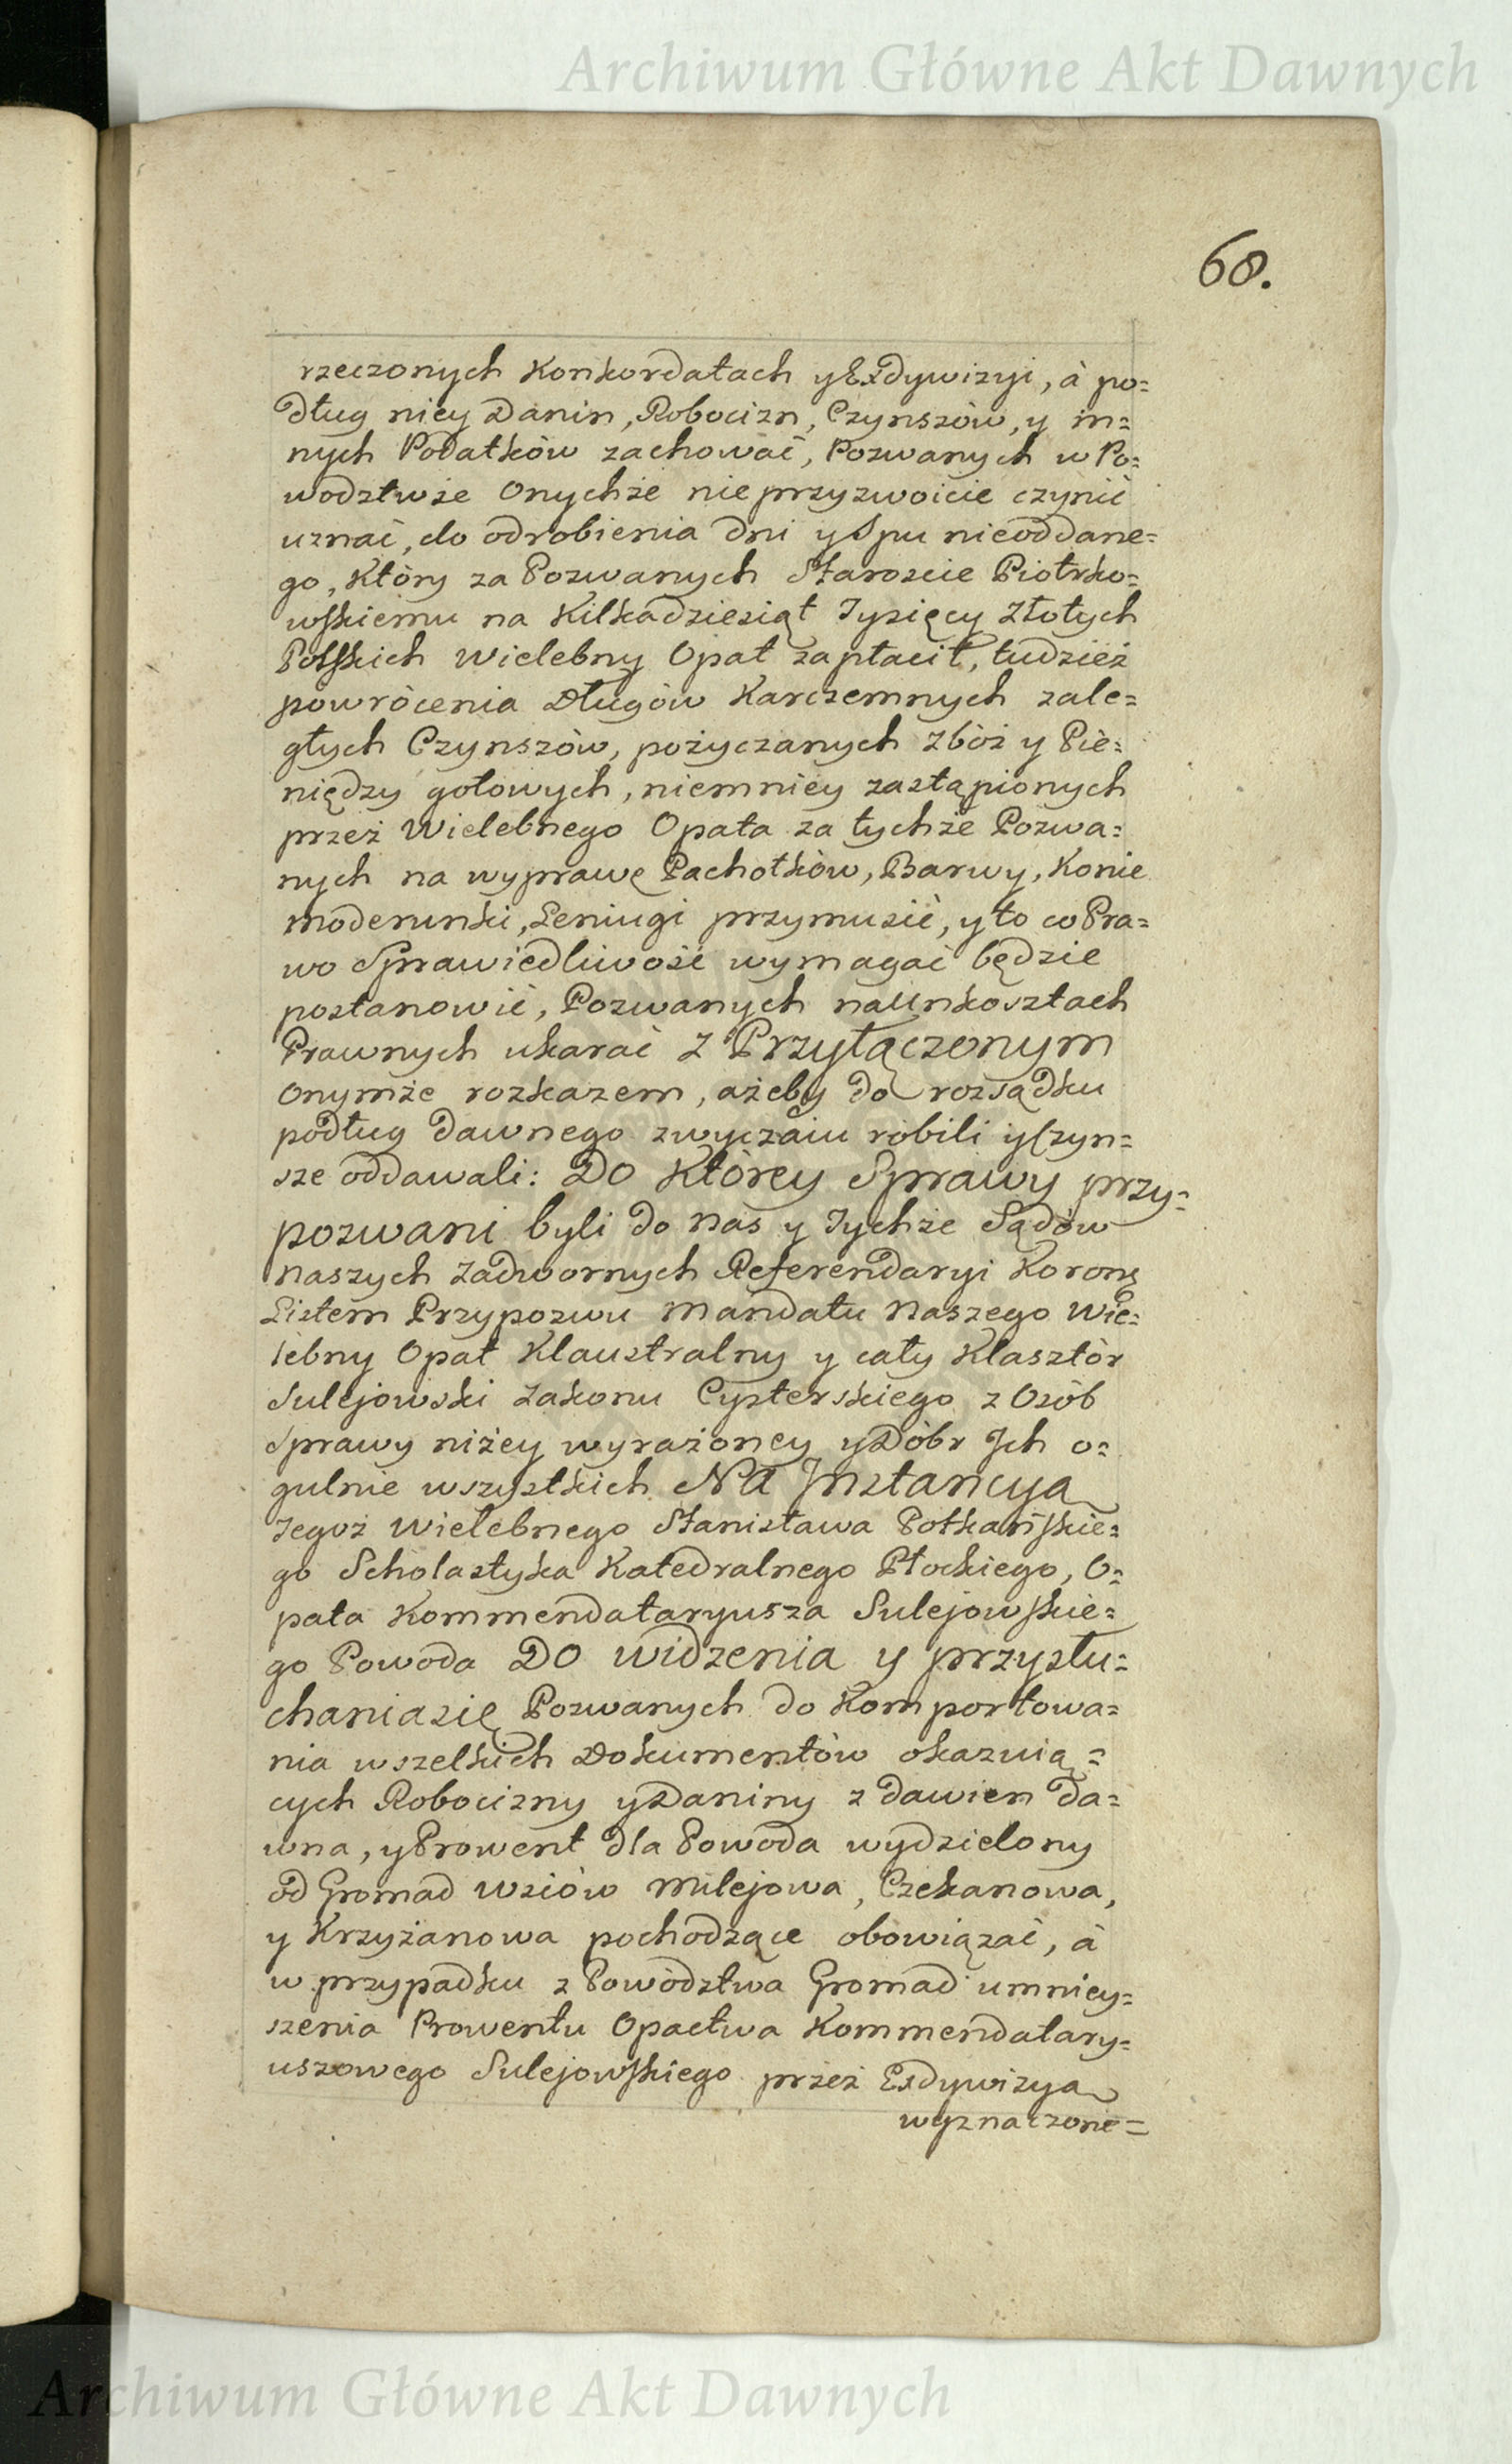 Archiwum Główne Akt Dawnych
68.
rzeczonych Konkordatach y Exdywizyi, à po=
dług niey Danin, Robocizn, Czynszów, y in=
nych Podatków zachować, Pozwanych w Po=
wodztwie Onychże nieprzyzwoicie czynić
uznać, do odrobienia dni y Spu nieoddane=
go, Który za Pozwanych Staroscie Piotrko=
wskiemu na Kilkadziesiąt Tysięcy Złotych
Polskich Wielebny Opat zapłacił, tudzież
powrócenia Długów Karczemnych zale=
głych Czynszów, pożyczanych zbóż y Pie=
niędzy gotowych, niemniey zastąpionych
przez Wielebnego Opata za tychże Pozwa=
nych na wyprawę Pachołków, Barwy, Konie
moderunki, Leniugi przymusić, y to co Pra=
wo Sprawiedliwość wymagać będzie
postanowić, Pozwanych na Unkosztach
Prawnych ukarać Z Przyłączonym
Onymże rozkazem, ażeby do rozsądku
podług dawnego zwyczaiu robili y Czyn=
sze oddawali: Do Którey Sprawy przy=
pozwani byli do Nas y Tychże Sądów
Naszych Zadwornych Referendaryi Korony
Listem Przypozwu Mandatu Naszego Wie=
lebny Opat Klaustralny y cały Klasztór
Sulejowski Zakonu Cysterskiego z Osób
Sprawy niżey wyrażoney y Dóbr Jch o=
gulnie wszystkich Na Jnstancya
Tegoż Wielebnego Stanisława Potkańskie=
go Scholastyka Katedralnego Płockiego, O=
pata Kommendataryusza Sulejowskie=
go Powoda Do widzenia y przysłu=
chania się Pozwanych do Komportowa=
nia wszelkich Dokumentów okazuią=
cych Robocizny y Daniny z dawien da=
wna, y Prowent dla Powoda wydzielony
od Gromad Wsiów Milejowa, Czekanowa,
y Krzyżanowa pochodzące obowiązać, à
w przypadku z Powództwa Gromad umniey=
szenia Prowentu Opactwa Kommendatary=
uszowego Sulejowskiego przez Exdywizya
wyznaczone=
Archiwum Główne Akt Dawnych